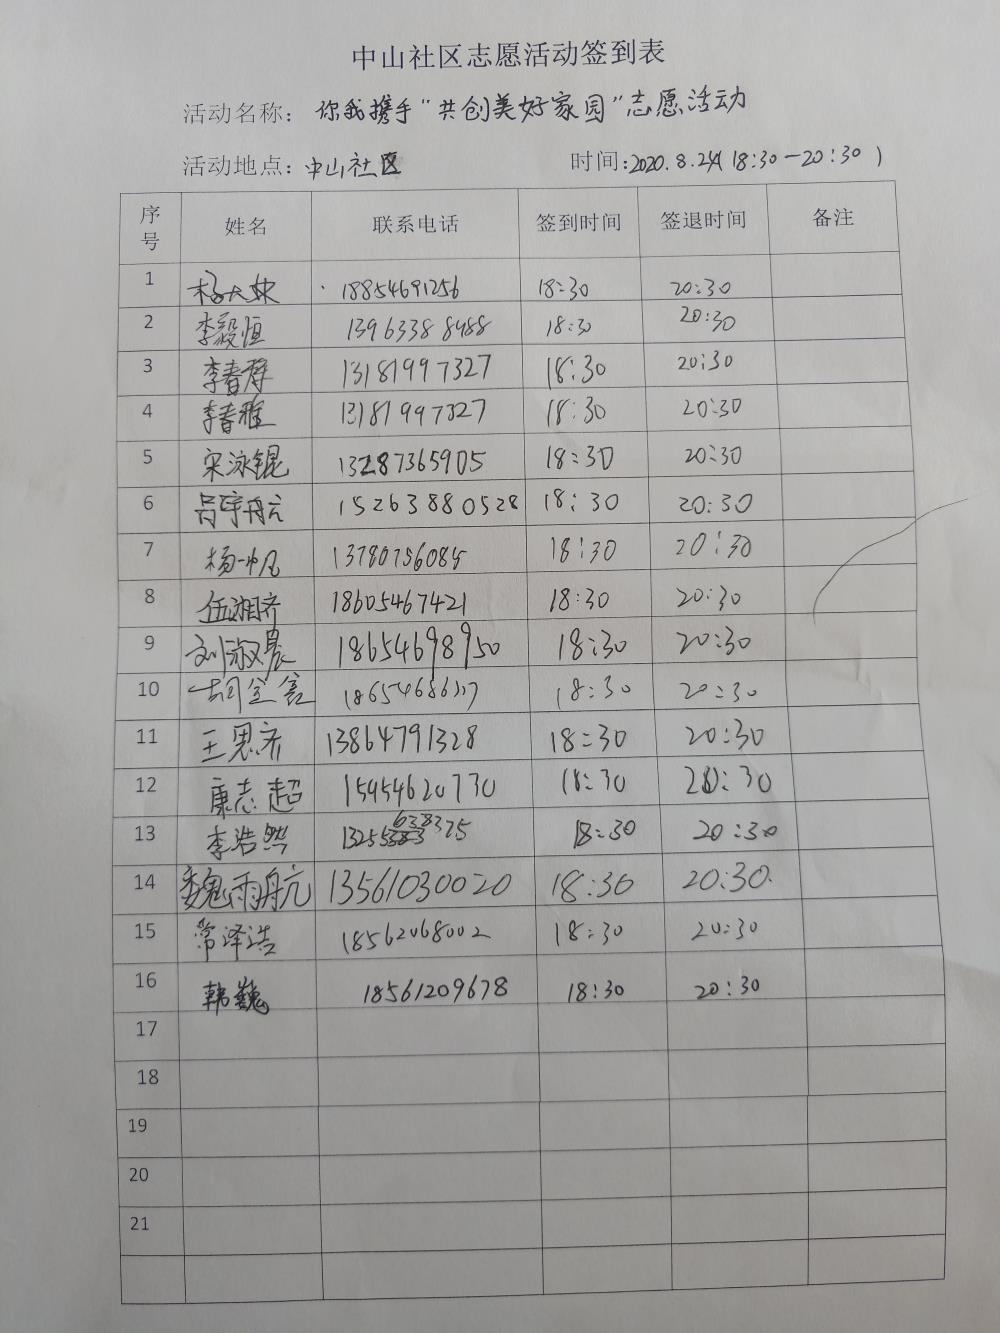 中山社区志愿活动签到表
活动名称: 你我携手“共创美好家园”志愿活动
活动地点: 中山社区 时间:2020.8.24(18:30-20:30)
序号 姓名 联系电话 签到时间 签退时间 备注
1 18854691256 18:30 20:30
2 李毅恒 13963388488 18:30 20:30
3 李春 13181997327 18:30 20:30
4 李春雅 13181997327 18:30 20:30
5 宋泳锟 13287365905 18:30 20:30
6 吕宇航 15263880528 18:30 20:30
7 杨一帆 13780756085 18:30 20:30
8 伍湘济 18605467421 18:30 20:30
9 刘淑晨 18654698950 18:30 20:30
10 胡 18:30 20:30
11 王思齐 13864791328 18:30 20:30
12 康志超 15954620730 18:30 20:30
13 李浩然 18:30 20:30
14 魏雨航 13561030020 18:30 20:30
15 常泽浩 18562068002 18:30 20:30
16 韩巍 18561209678 18:30 20:30
17
18
19
20
21